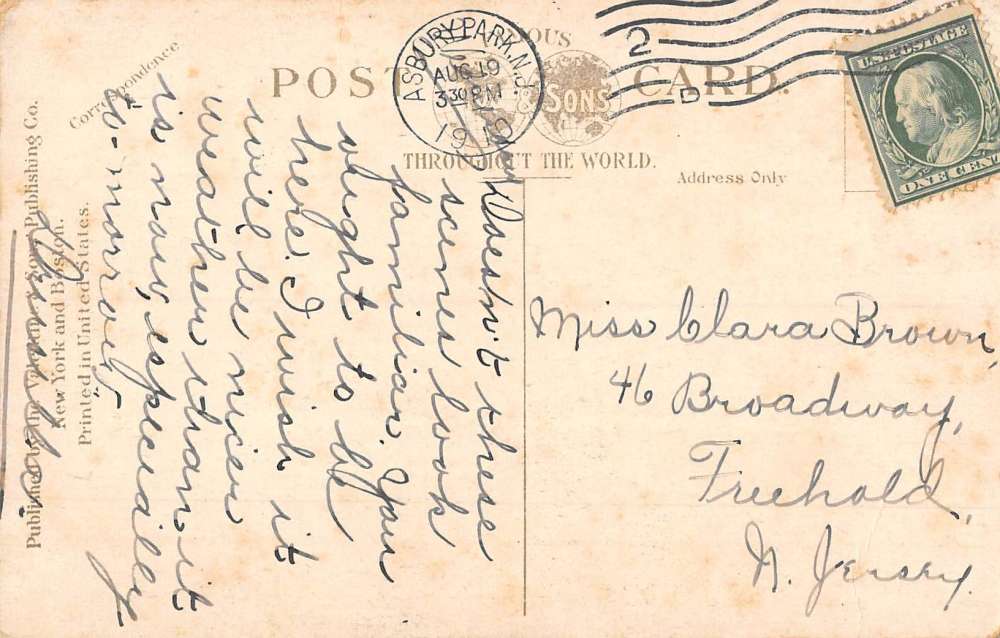 POST CARD.
THROUGHOUT THE WORLD.
& SONS
Address Only
Correspondence
ASBURY PARK, N.J.
AUG 19
3 30 PM
1910
2
D
U.S. POSTAGE
ONE CENT
Doesn't these
scenes look
familiar. You
ought to be
here. I wish it
will be nicer
weather than it
is now, especially
to-morrow.
Miss Clara Brown,
46 Broadway,
Freehold,
N. Jersey.
Publishing Co.
New York and Boston.
Printed in United States.